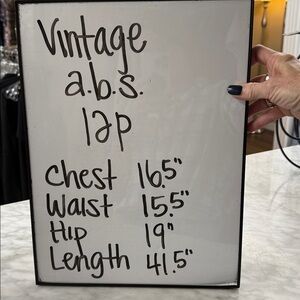 Vintage
a.b.s.
12p
Chest 16.5"
Waist 15.5"
Hip 19"
Length 41.5"